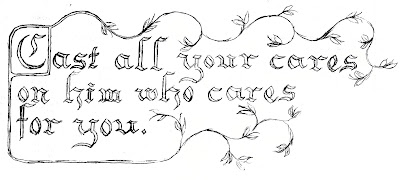 Cast all your cares
on him who cares
for you.